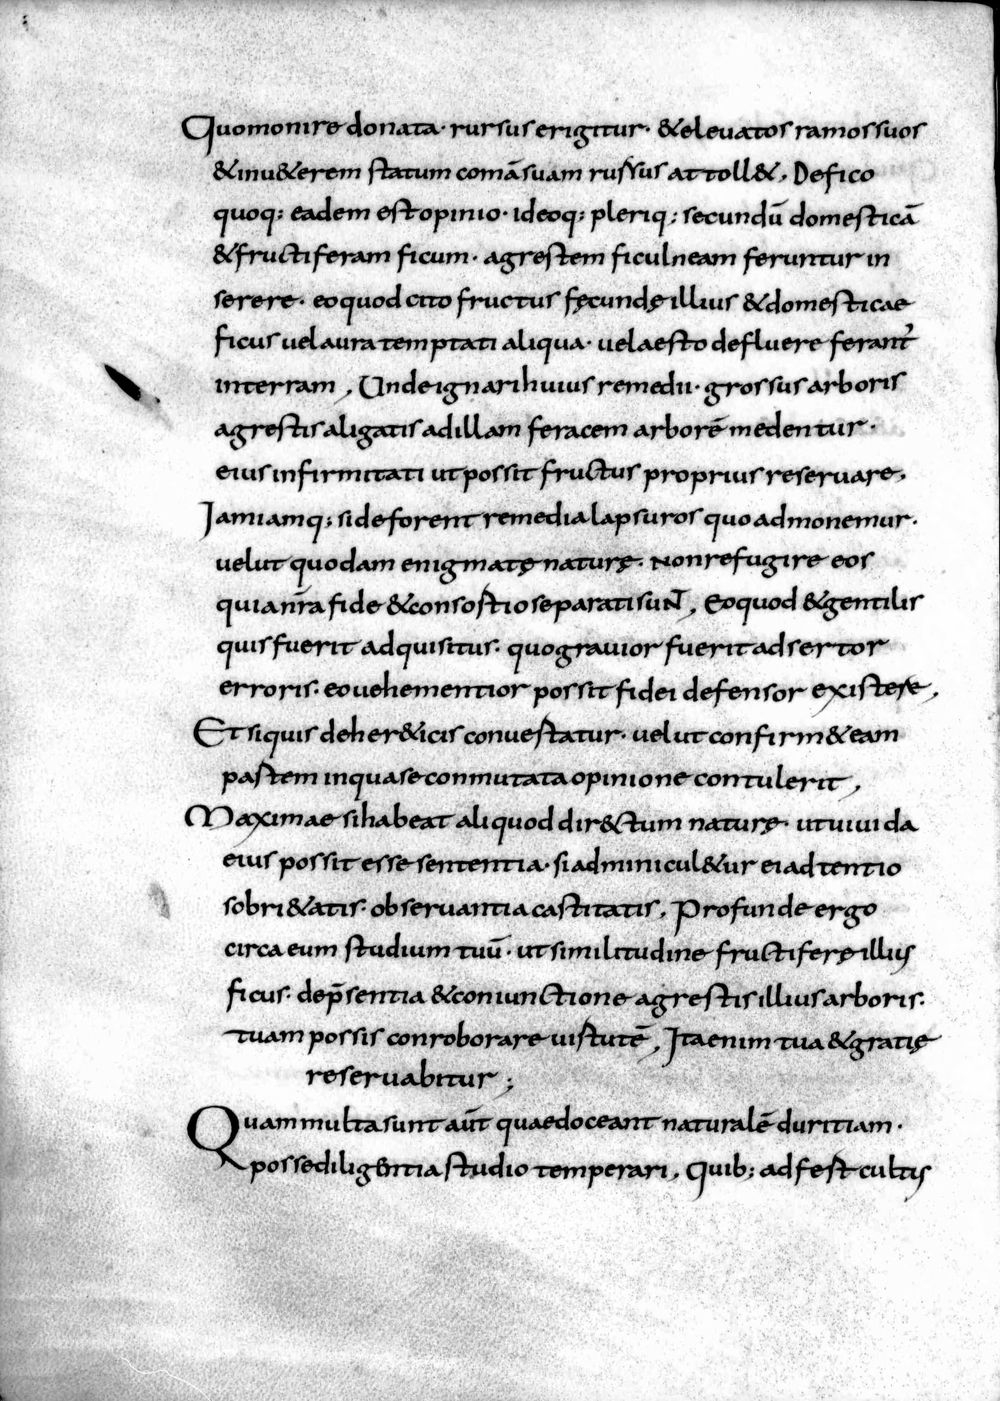 Quomonire donata· rursus erigitur· & elevatos ramos suos
& inu&erem statum comā suam rursus attoll&, De fico
quoq; eadem est opinio· ideoq; pleriq; secundū domesticā
& fructiferam ficum· agrestem ficulneam feruntur in
serere· eo quod cito fructus fęcundę illius & domesticae
ficus uel aura temptati aliqua· uel aesto defluere ferant᷑
interram, Unde ignari huius remedii· grossus arboris
agrestis aligatis ad illam feracem arborē medentur·
eius infirmitati ut possit fructus proprius reseruare,
Jamiamq; si deforent remedia lapsuros quo admonemur·
uelut quodam enigmatę naturę· Non refugire eos
qui a nr̄a fide & consostio separati suNT, Eo quod & gentilis
quis fuerit adquisitus· quo grauior fuerit adsertor
erroris· eo uehementior possit fidei defensor existere,
Et si quis de her&icis conuestatur· uelut confirm& eam
pastem in qua se conmutata opinione contulerit,
Maximae si habeat aliquod dir&ctum naturę· ut uiuida
eius possit esse sententia· si adminicul&ur ei adtentio
sobri&atis· obseruantia castitatis, Profunde ergo
circa eum studium tuū· ut similitudine fructiferę illius
ficus· de p̄sentia & coniunctione agrestis illius arboris·
tuam possis conroborare uistutē, Ita enim tua & gratię
reseruabitur;
Quam multa sunt aūt quae doceant naturalē duritiam·
posse diligentia studio temperari, Quib; adfest cultis